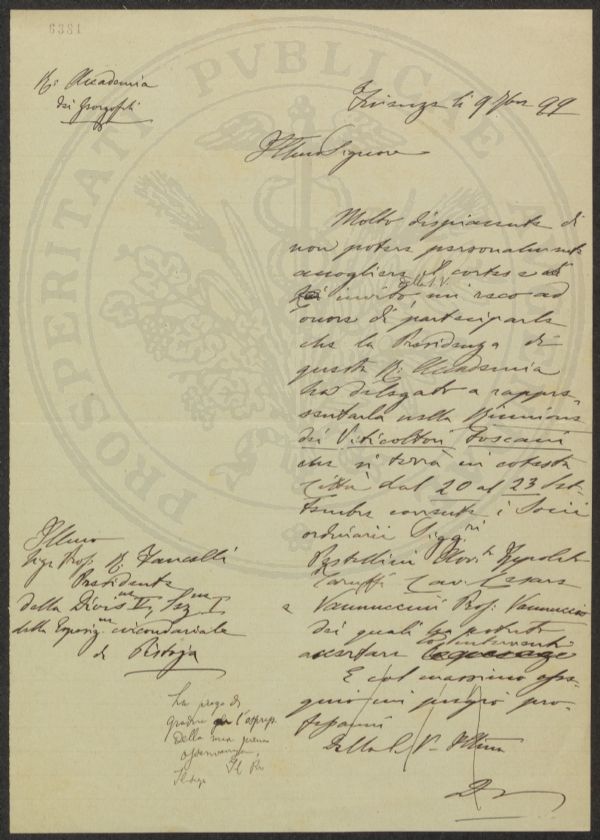 6381
PROSPERITATI PVBLICAE
R. Accademia
dei Georgofili
Firenze li 9 7bre 99
Illmo Signore
Molto dispiacente di
non potere personalmente
accogliere il cortese
invito della S.V. mi reco ad
onore di parteciparle
che la Presidenza di
questa R. Accademia
ha delegato a rappre-
sentarla nella Riunione
dei Viticoltori Toscani
che si terrà in cotesta
Città dal 20 al 23 Set-
tembre corrente i Socii
ordinarii Sigg.ri
Pestellini Ippolito
Cav. Cesare
e Vannuccini Prof. Vannuccio
dei quali ha potuto
accertare
E col massimo osse-
quio mi pregio pro-
fessarmi
Della S. V. Illma
Illmo
Sigr Prof. R.
Presidente
della Divis.ne II, Sez. I
della Esposiz.ne circondariale
di Pistoja
La prego di
gradire
della mia piena
osservanza